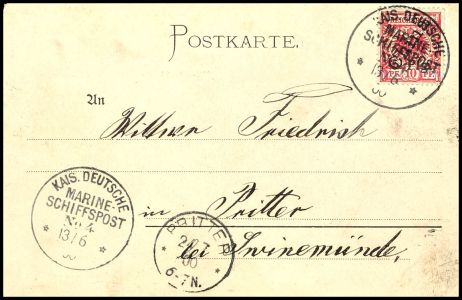 POSTKARTE.
KAIS. DEUTSCHE
MARINE-
SCHIFFSPOST
13/6
00
10
An
Wittwe Friedrich
in Pritter
bei Swinemünde,
KAIS. DEUTSCHE
MARINE-
SCHIFFSPOST
No. 4.
13/6
00
PRITTER
00
6-7N.